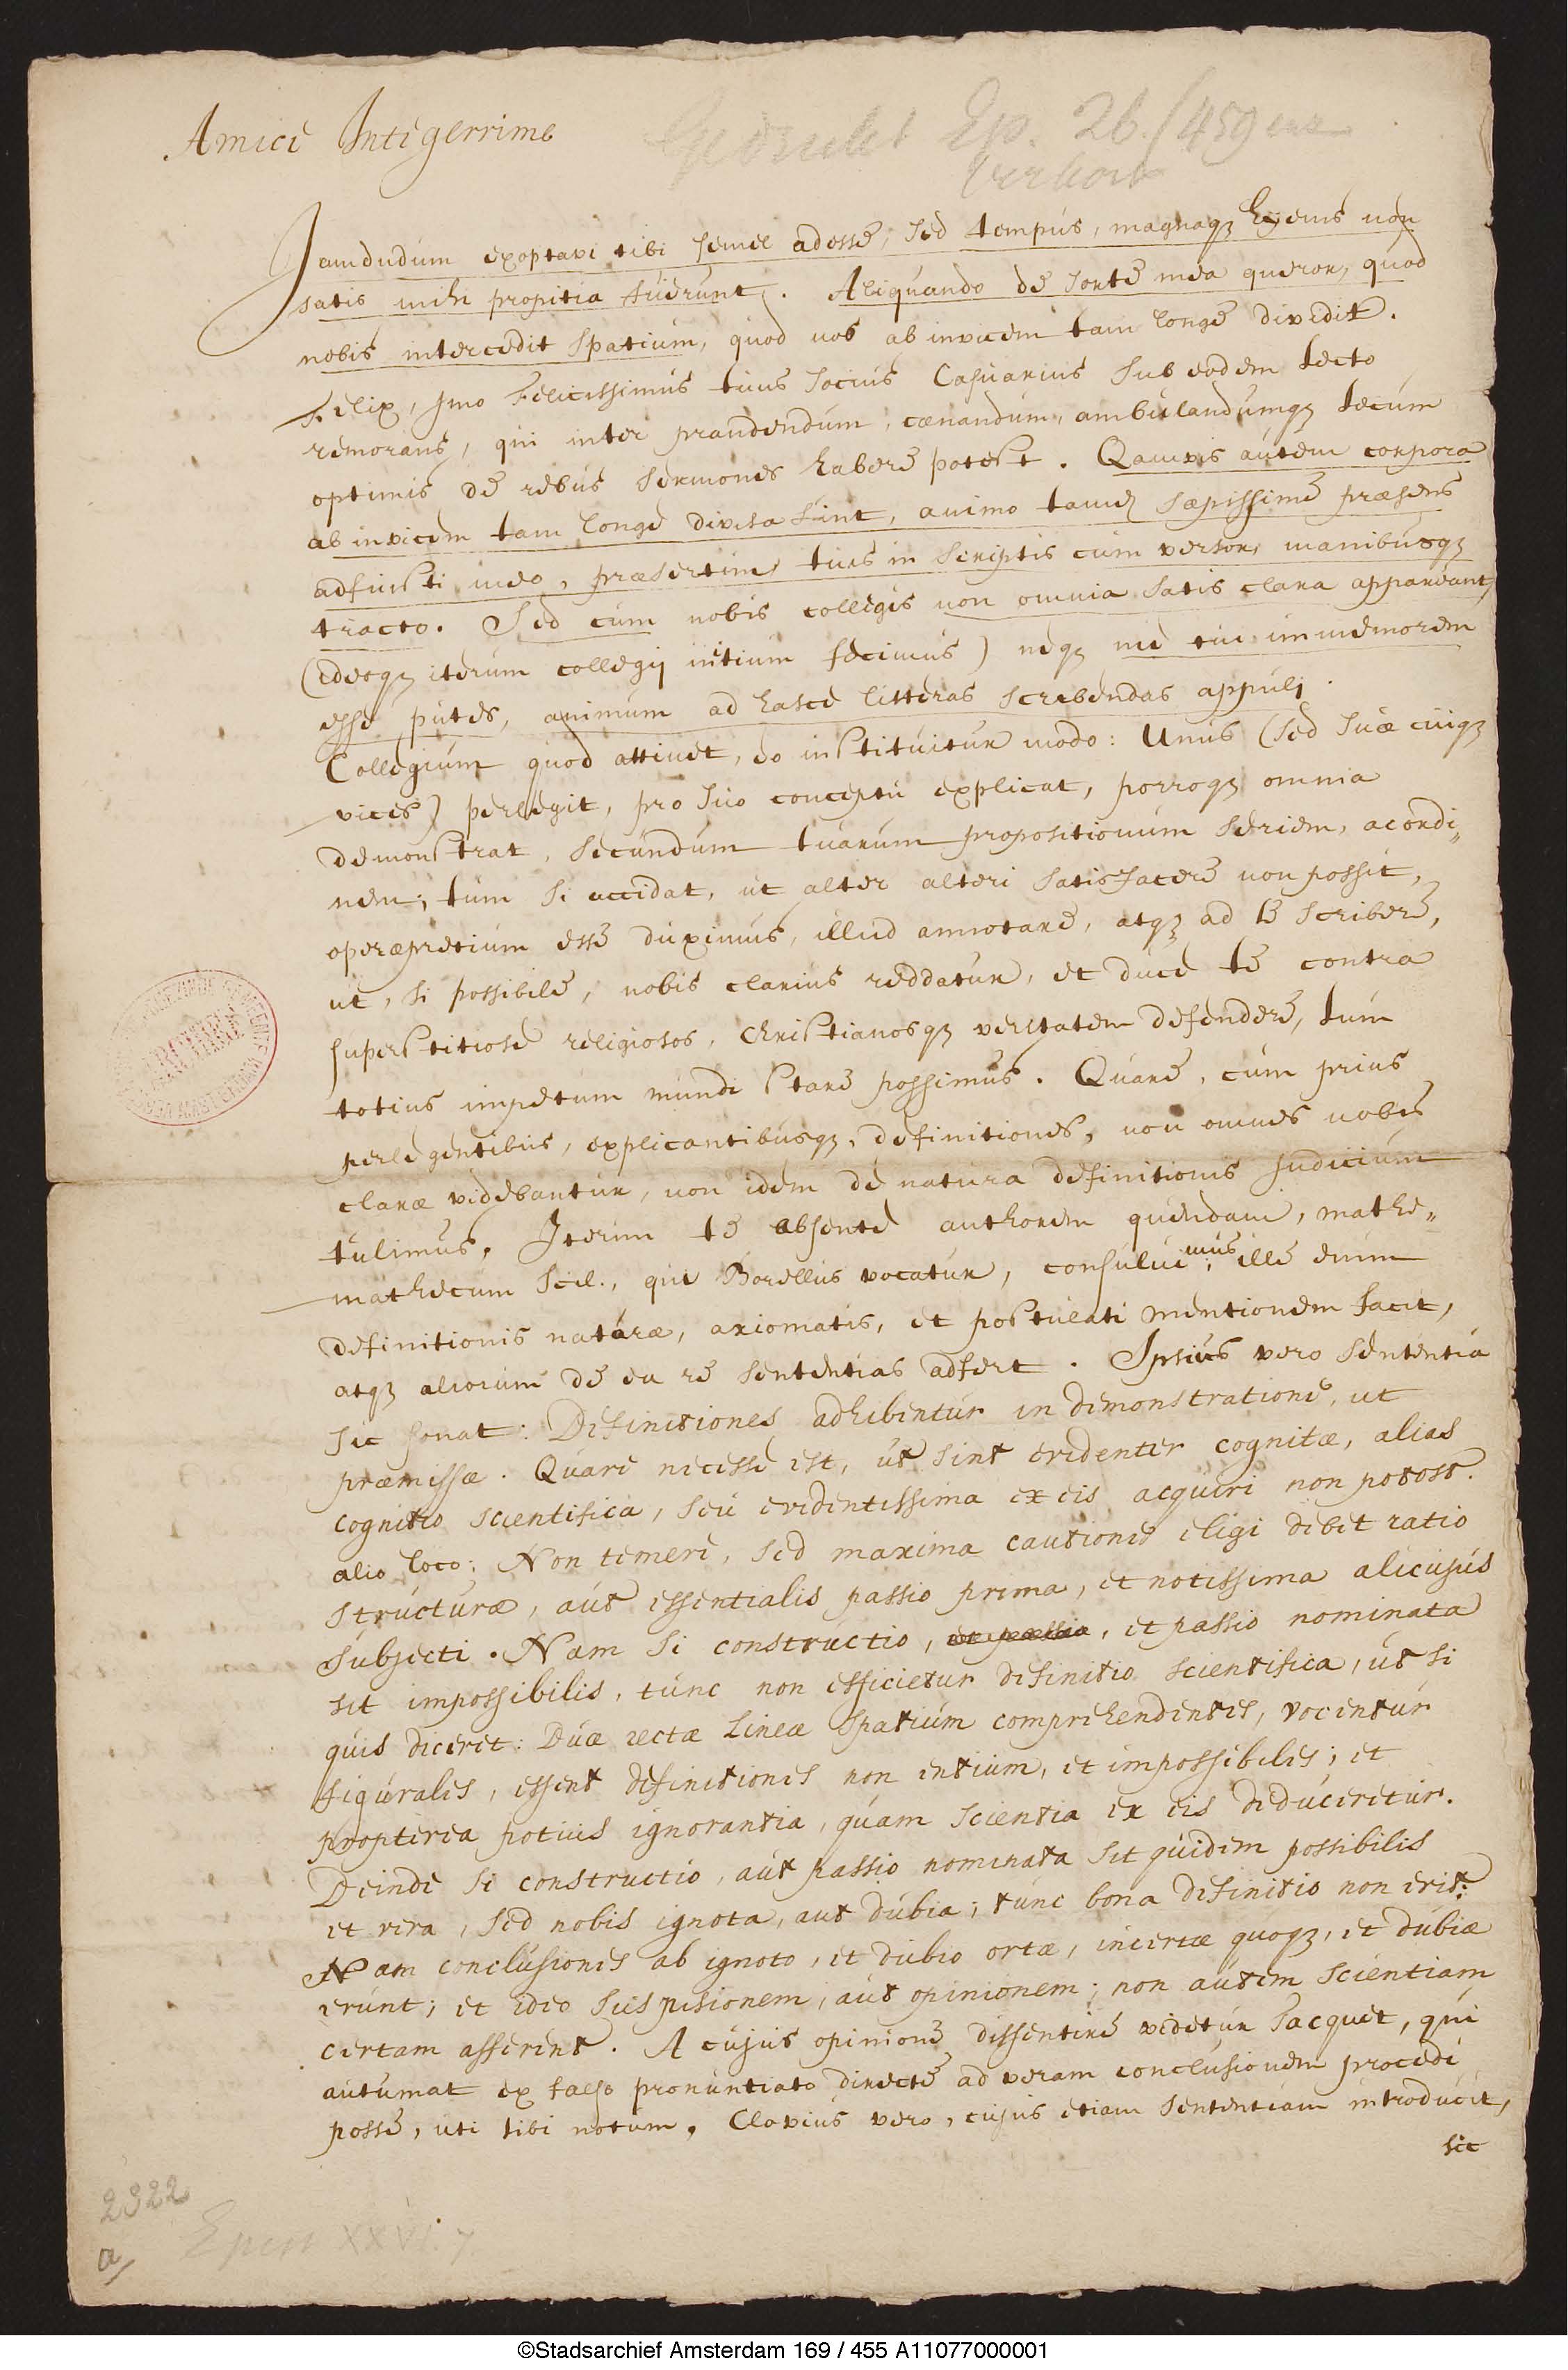 Amice Integerrime
Ep. 26. / 459
Jamdudum exoptavi tibi semel adesse, sed tempus, magnaqꝫ hyems non
satis mihi propitia fuerunt. Aliquando de sorte mea queror, quod
nobis intercedit spatium, quod nos ab invicem tam longe dividit.
Felix, imo Felicissimus tuus socius Casuarius sub eodem tecto
remorans, qui inter prandendum, cænandum, ambulandumqꝫ tecum
optimis de rebus sermones habere potest. Qamvis autem corpora
ab invicem tam longe divisa sint, animo tamen sæpissime præsens
adfuisti meo, præsertim tuis in scriptis cum versor, manibusqꝫ
tracto. Sed cum nobis collegis non omnia satis clara appareant,
(ideoqꝫ iterum collegij initium fecimus) neqꝫ me tui immemorem
esse putes, animum ad hasce litteras scribendas appuli.
Collegium quod attinet, eo instituitur modo: Unus (sed suæ cuiqꝫ
vices) perlegit, pro suo conceptu explicat, porroqꝫ omnia
demonstrat, secundum tuarum propositionum seriem, ac ordi„
nem; tum si accidat, ut alter alteri satisfacere non possit,
operæpretium esse duximus, illud annotare, atqꝫ ad te scribere,
ut, si possibile, nobis clarius reddatur, et duce te contra
superstitiose religiosos, Christianosqꝫ veritatem defendere, tum
totius impetum mundi stare possimus. Quare, cum prius
perlegentibus, explicantibusqꝫ, definitiones, non omnes nobis
claræ videbantur, non idem de natura definitionis judicium
tulimus. Iterim te absente authorem quendam, mathe„
mathecum scil., qui Borellus vocatur, consuluimus; ille enim
definitionis naturæ, axiomatis, et postulati mentionem facit,
atqꝫ aliorum de ea re sententias adfert. Ipsius vero sententia
sic sonat: Definitiones adhibentur in demonstratione, ut
præmissæ. Quare necesse est, ut sint evidenter cognitæ, alias
cognitio scientifica, seu evidentissima ex eis acquiri non potest.
alio loco: Non temere, sed maxima cautione eligi debet ratio
structuræ, aut essentialis passio prima, et notissima alicujus
subjecti. Nam si constructio, et passio, et passio nominata
sit impossibilis, tunc non efficietur definitio scientifica, ut si
quis diceret: Duæ rectæ lineæ spatium comprehendentes, vocentur
figurales, essent definitiones non entium, et impossibiles; et
propterea potius ignorantia, quam scientia ex eis deduceretur.
Deinde si constructio, aut passio nominata sit quidem possibilis
et vera, sed nobis ignota, aut dubia; tunc bona definitio non erit:
Nam conclusiones ab ignoto, et dubio ortæ, incertæ quoqꝫ, et dubiæ
erunt; et ideo suspisionem, aut opinionem; non autem scientiam
certam afferent. A cujus opinione dissentire videtur Tacquet, qui
autumat ex falso pronuntiato directe ad veram conclusionem procedi
posse, uti tibi notum. Clavius vero, cujus etiam sententiam introducit,
sic
2322
a/
Epist XXVI.
©Stadsarchief Amsterdam 169 / 455 A11077000001